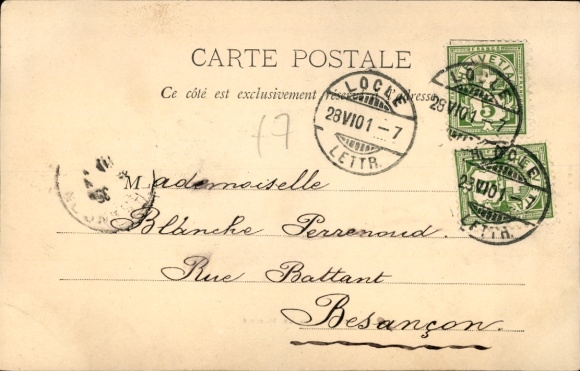 CARTE POSTALE
Ce côté est exclusivement réservé à l'adresse
LOCLE
28 VI 01 - 7
LETTR.
FRANCO
HELVETIA
5
LOCLE
28 VI 01 - 7
LOCLE
28 VI 01
LETTR.
17
Mademoiselle
Blanche Perrenoud
Rue Battant
Besançon.